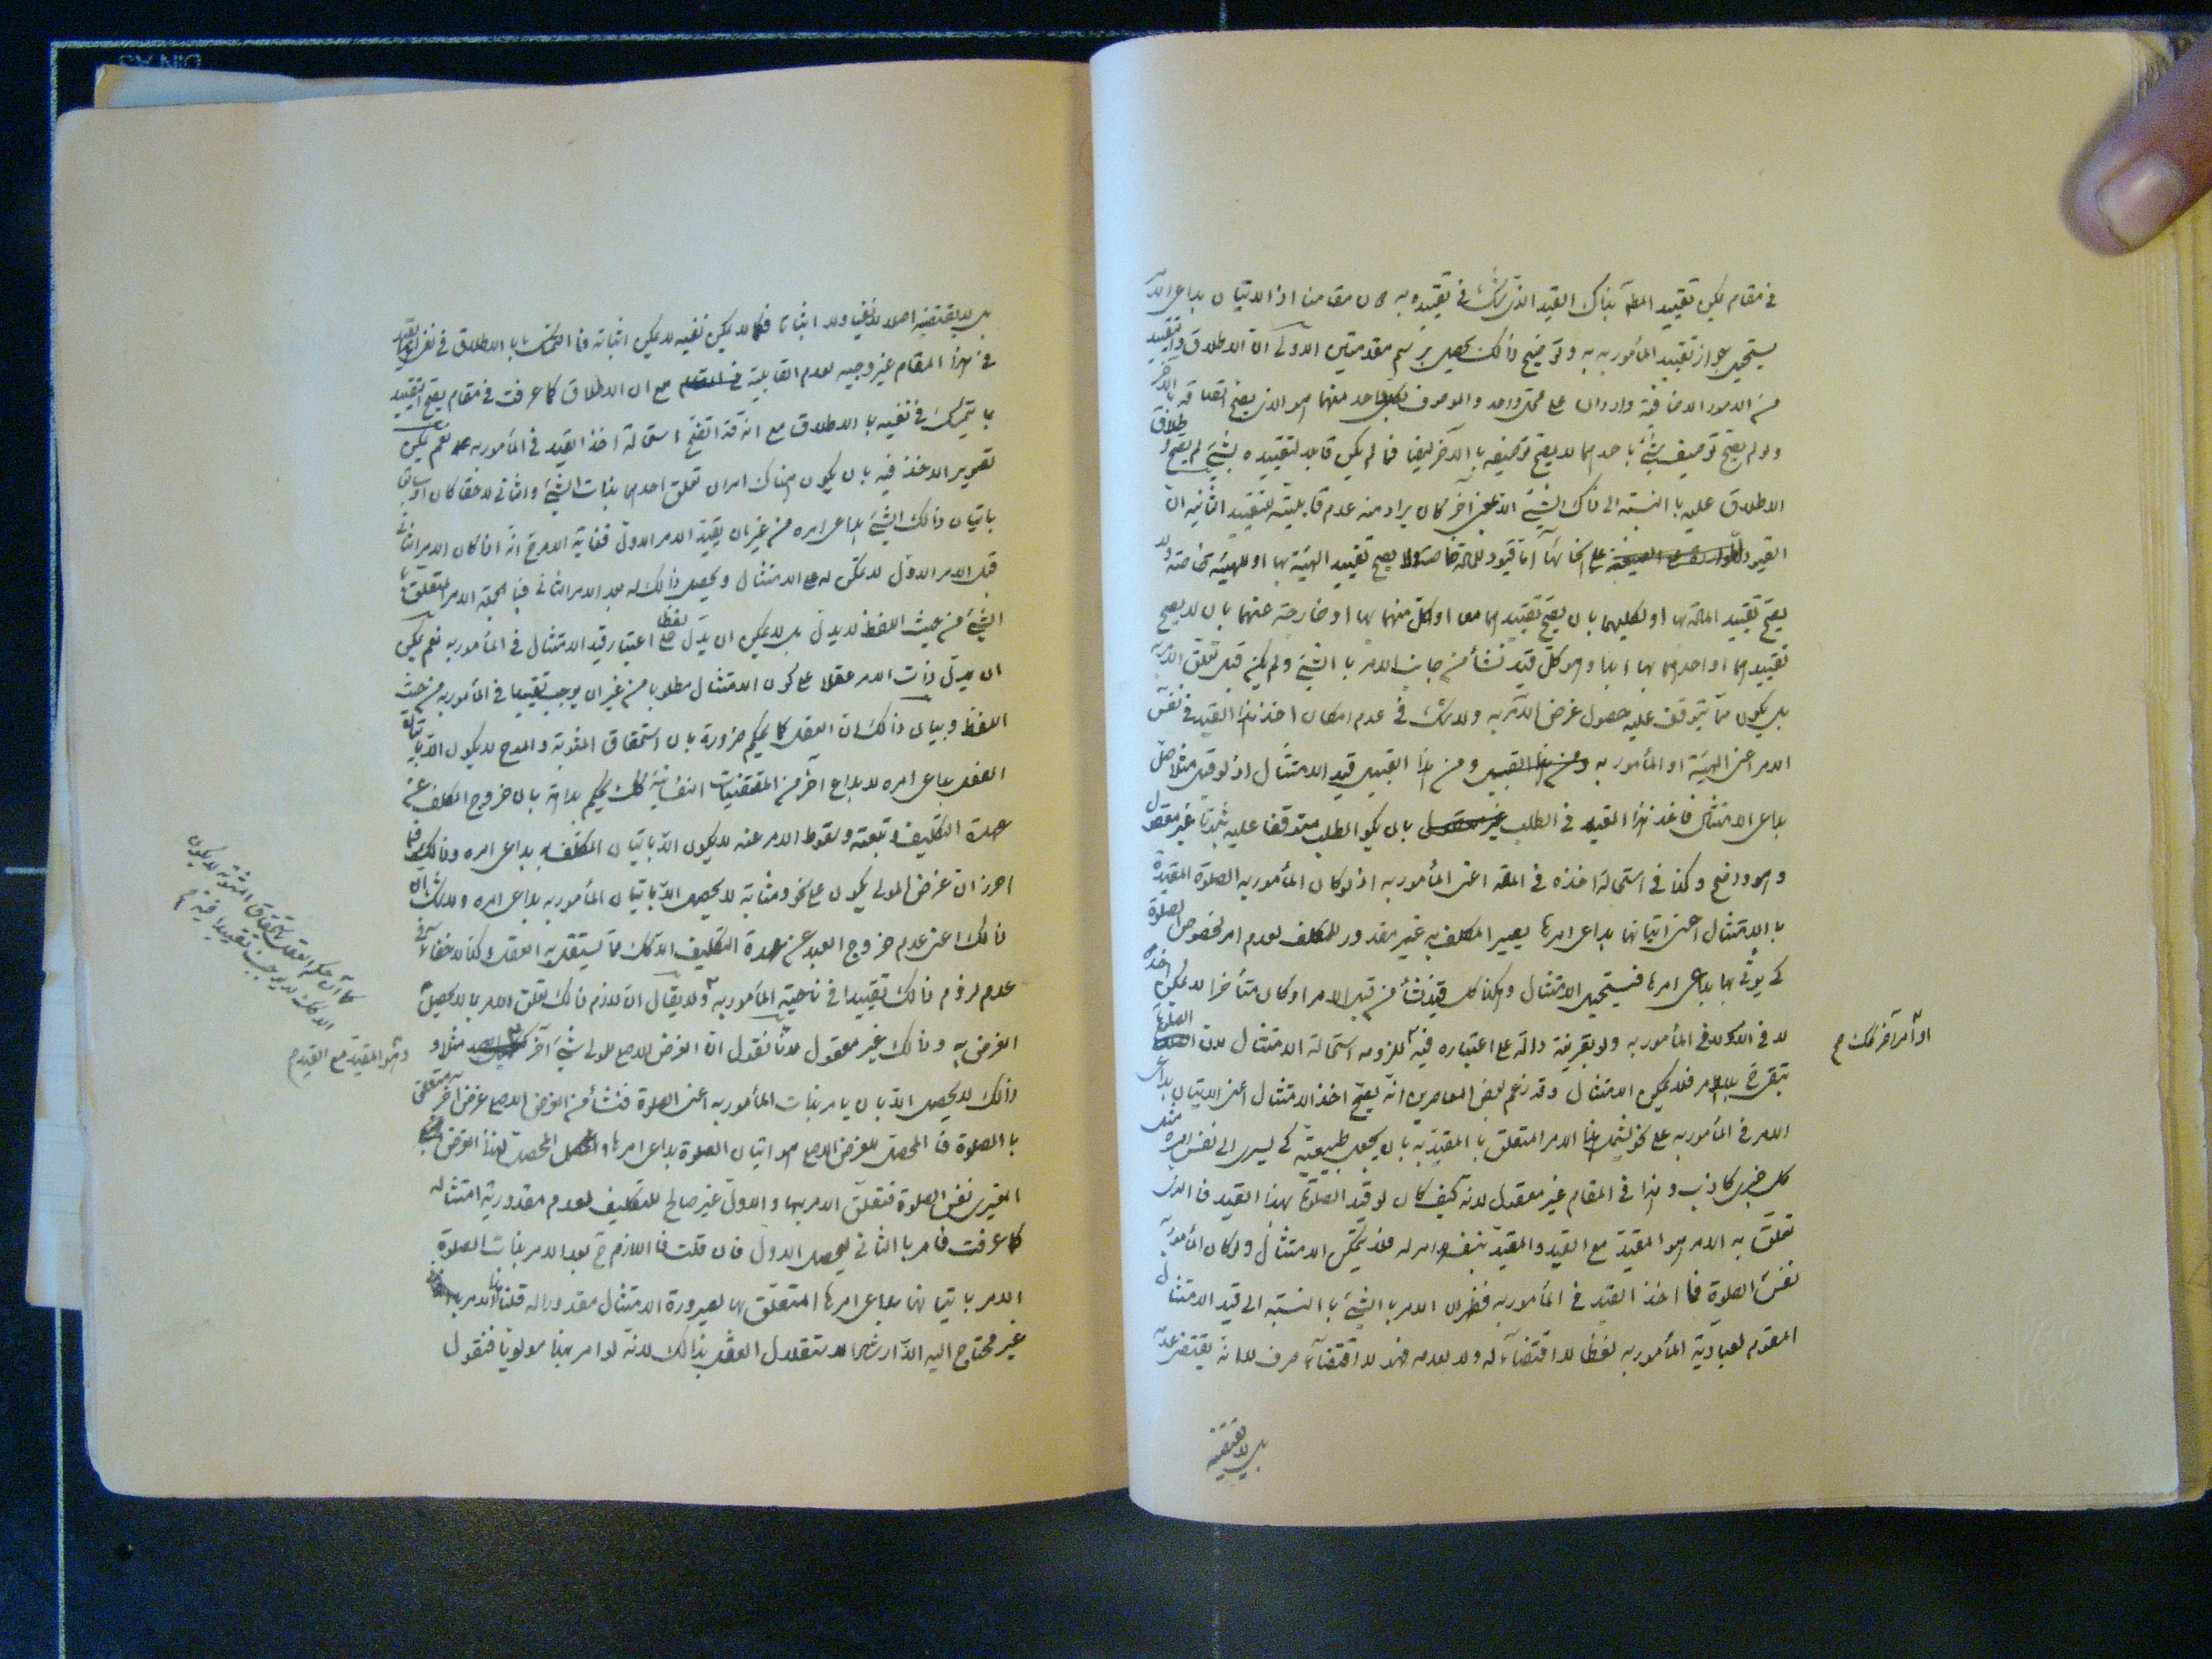 في مقام يمكن تقييد المطلق بذاك القيد الذي شك في تقييده به كان مقامنا اذ الاتيان بداعى الامر
يستحيل جواز تقييد المأمور به به وتوضيح ذالك يحصل برسم مقدمتين الاولى ان الاطلاق والتقييد
من الامور الاضافية واردان على محل واحد والموصوف بكل واحد منهما هو الذى يصح اتصافه بالآخر
ولو لم يصح توصيف شيئ باحدهما لا يصح توصيفه بالآخر ايضا فما لم يكن قابلا لتقييده بشيئ لم يصح اطلاق
الاطلاق عليه بالنسبة الى ذاك الشيئ الا بمعنى آخر كان يراد منه عدم قابليته للتقييد الثانية ان
القيود على انحائها اما قيود للمادة خاصة ولا يصح تقييد الهيئة بها او للهيئة خاصة ولا
يصح تقييد المادة بها او لكليهما بان يصح تقييدهما معا او كل منهما بها او خارجة عنهما بان لا يصح
تقييدهما او احدهما بها ابدا وهو كل قيد نشأ من جانب الامر بالشيئ ولم يكن قبل تعلق الامر به
بل يكون مما يتوقف عليه حصول غرض الآمر به ولا شك في عدم امكان اخذ هذا القيد في نفس
الامر اعنى الهيئة او المأمور به ومن هذا القبيل قيد الامتثال اذ لو قيل مثلا صل
بداعى الامتثال فاخذ هذا القيد في الطلب بان يكون الطلب متوقفا عليه غير معقول
وهو واضح وكذا في استحالة اخذه في المادة اعنى المأمور به اذ لو كان المأمور به الصلوة المقيدة
بالامتثال اعنى اتيانها بداعى امرها يصير المكلف به غير مقدور للمكلف لعدم امر بخصوص الصلوة
كى يؤتى بها بداعى امرها فيستحيل الامتثال وهكذا كل قيد نشأ من قبل الامر او كان متأخرا لا يمكن اخذه
لا في الامر ولا في المأمور به ولا بقرينة دالة على اعتباره فيه للزومه استحالة الامتثال لان الصلوة
بلا امر فلا يمكن الامتثال وقد زعم بعض المعاصرين انه يصح اخذ الامتثال اعنى الاتيان بداعى
الامر في المأمور به على نحو يشمل هذا الامر المتعلق بالمقيد به بان يجعل طبيعته كى يسرى الى نفس امره مثل
كل خبرى كاذب وهذا في المقام غير معقول لانه كيف كان لو قيد الصلوة بهذا القيد فالذى
تعلق به الامر هو المقيد مع القيد والمقيد بنفسه لا امر له فلا يمكن الامتثال ولو كان المأمور به
نفس الصلوة فما اخذ القيد في المأمور به فظهر ان الامر بالشيئ بالنسبة الى قيد الامتثال
المقوم لعبادية المأمور به لفظا لا اقتضاء له ولا لعدمه فهو لا اقتضاء صرف لا انه يقتضى عدمه
بل لا يقتضيه
او امر آخر كذلك صح
بل لا يقتضيه اصلا لا نفيا ولا اثباتا فكما لا يمكن نفيه لا يمكن اثباته فالتمسك بالاطلاق في نفى التقييد
في هذا المقام غير وجيه لعدم القابلية مع ان الاطلاق كما عرفت في مقام يصح التقييد
بما يتمسك في نفيه بالاطلاق مع انه قد اتضح استحالة اخذ القيد في المأمور به نعم يمكن
تصوير الاخذ فيه بان يكون هناك امران تعلق احدهما بذات الشيئ والثانى لاحقا كان او سابقا
باتيان ذالك الشيئ بداعى امره من غير ان يقيد الامر الاول فغاية الامر انه اذا كان الامر الثانى
قبل الامر الاول لا يمكن له الامتثال ويحصل ذالك له بعد الامر الثانى فبالجملة الامر المتعلق با
الشيئ من حيث اللفظ لا يدل بل لا يمكن ان يدل لفظا على اعتبار قيد الامتثال في المأمور به نعم يمكن
ان يدل ذات الامر عقلا على كون الامتثال مطلوبا من غير ان يوجب تقييدا في المأمور به من حيث
اللفظ وبيان ذالك ان العقل كما يحكم ضرورة بان استحقاق المثوبة والمدح لا يكون الا باتيانه
الفعل بداعى امره لا بداع آخر من المقتضيات النفسانية كذلك يحكم بداهة بان خروج المكلف عن
عهدة التكليف وتبعته وسقوط الامر عنه لا يكون الا باتيان المكلف به بداعى امره وذالك فيما
احرز ان غرض المولى يكون على نحو ومثابة لا يحصل الا باتيان المأمور به بداعى امره ولا شك ان
ذالك اعنى عدم خروج العبد عن عهدة التكليف الا كذلك مما يستقل به العقل وكذا لا خفاء في
عدم لزوم ذالك تقييدا في ناحية المأمور به ولا يقال ان لازم ذالك تعلق الامر بما لا يحصل
الغرض به وذالك غير معقول لانا نقول ان الغرض الاصلى للمولى شيئ آخر مثلا و
ذالك لا يحصل الا بان يامر بذات المأمور به اعنى الصلوة فنشأ من الغرض الاصلى غرض آخر متعلق
بالصلوة فالمحصل للغرض الاصلى هو اتيان الصلوة بداعى امرها والمحصل لهذا الغرض
الغيرى نفس الصلوة فتعلق الامر بها والاول غير صالح للتكليف لعدم مقدورية امتثاله
كما عرفت فامر بالثانى ليحصل الاول فان قلت فاللازم ح بعد الامر بذات الصلوة
الامر باتيانها بداعى امرها المتعلق بها لصيرورة الامتثال مقدورا له قلنا هذا الامر
غير محتاج اليه الا ارشادا لاستقلال العقل بذالك لانه لو امر بهذا مولويا فنقول
كما ان حكم العقل باستحقاق المثوبة لا يكون
الا كذلك لا يوجب تقييدا فيه صح
وهو المقيد مع القيد صح